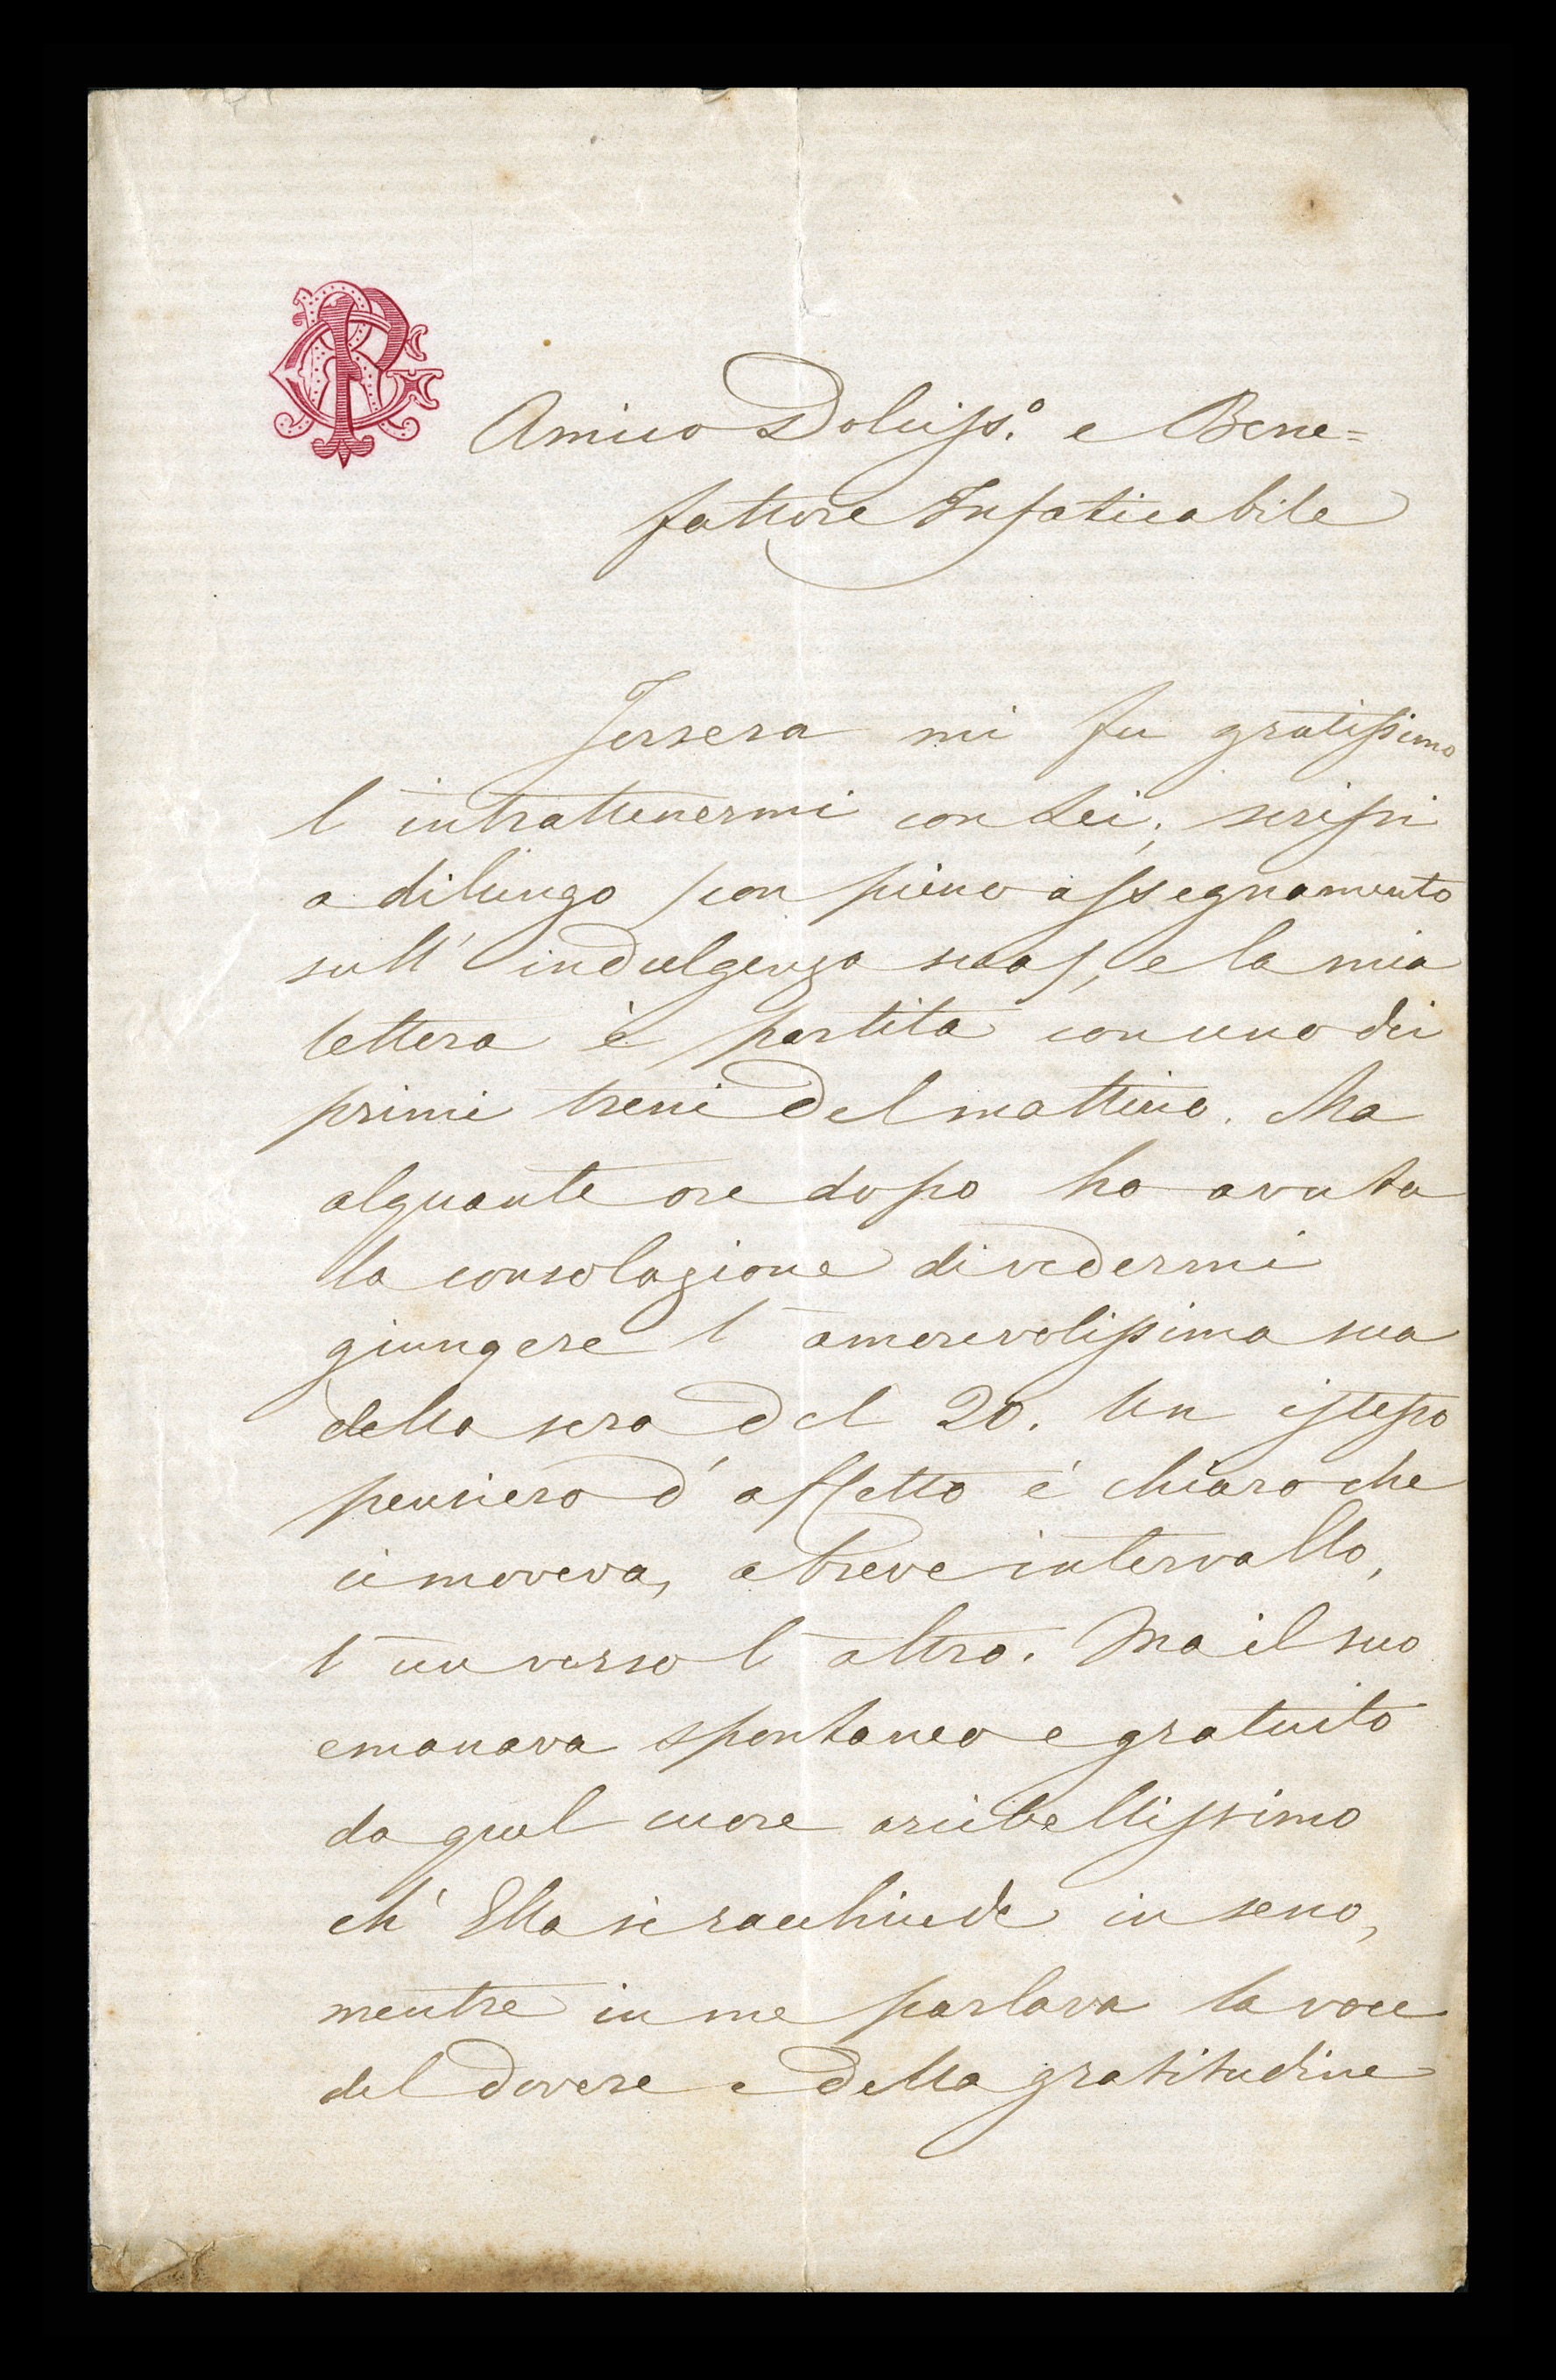 Amico Dolciss.º e Bene=
fattore Infaticabile
Jersera mi fu gratissimo
l'intrattenermi con Lei; scrissi
a dilungo (con pieno assegnamento
sull'indulgenza sua), e la mia
lettera è partita con uno dei
primi treni del mattino. Ma
alquante ore dopo ho avuta
la consolazione di vedermi
giungere l'amorevolissima sua
della sera del 20. Un istesso
pensiero d'affetto è chiaro che
ci moveva, a breve intervallo,
l'un verso l'altro. Ma il suo
emanava spontaneo e gratuito
da quel cuore arcibellissimo
ch'Ella si racchiude in seno,
mentre in me parlava la voce
del dovere e della gratitudine